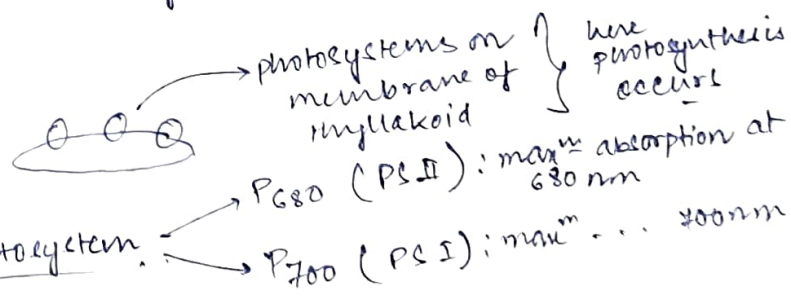 photosystems on
membrane of
thyllakoid
here
photosynthesis
occurs
P680 (PS II) : maxm absorption at
680 nm
tosystem
P700 (PS I) ; maxm ... 700nm